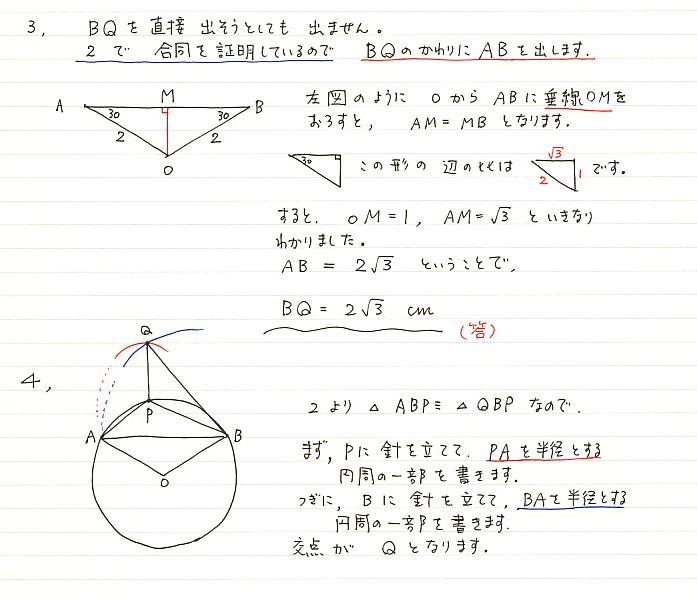 3, BQを直接出そうとしても出ません。
2で合同を証明しているので BQのかわりにABを出します.
A M B
30 30
2 2
O
左図のように OからABに垂線OMを
おろすと, AM=MB となります.
30
この形の辺の比は
√3
2 1
です.
すると, OM=1, AM=√3 といきなり
わかりました.
AB = 2√3 ということで,
BQ = 2√3 cm
(答)
4,
Q
P
A B
O
2より △ABP≡△QBP なので.
まず, Pに針を立てて. PAを半径とする
円周の一部を書きます.
つぎに, Bに針を立てて, BAを半径とする
円周の一部を書きます.
交点が Qとなります.